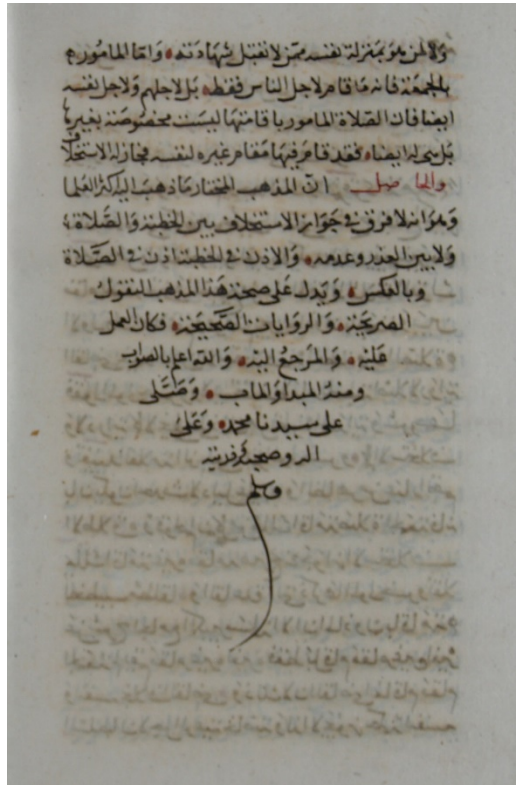 ولا لمن هو بمنزلة نفسه ممن لا تقبل شهادته واما المامور به
بالجمعة فانه ما قام لاجل الناس فقط بل لاجلهم ولاجل نفسه
ايضا فان الصلاة المامور باقامتها ليست مخصوصة بغيره
بل هي له ايضا فقد قام فيها مقام غيره لنفسه فجاز له الاستخلاف
والحاصل ان المذهب المختار ما ذهب اليه اكثر العلما
وهو انه لا فرق في جواز الاستخلاف بين الخطبة والصلاة
ولا بين العذر وعدمه والاذن في الخطبة اذن في الصلاة
وبالعكس ويدل على صحة هذا المذهب النقول
الصريحة والروايات الصحيحة فكان العمل
عليه والمرجع اليه والله اعلم بالصواب
ومنه المبدا والماب وصلى
على سيدنا محمد وعلى
اله وصحبه وذريته
وسلم